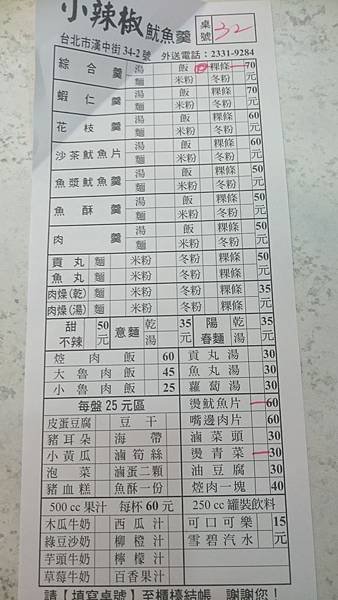 小辣椒魷魚羹 桌號 32
台北市漢中街34-2號 外送電話：2331-9284
綜合羹 湯 飯 粿條 70元
麵 米粉 冬粉
蝦仁羹 湯 飯 粿條 70元
麵 米粉 冬粉
花枝羹 湯 飯 粿條 60元
麵 米粉 冬粉
沙茶魷魚片 湯 飯 粿條 60元
麵 米粉 冬粉
魚漿魷魚羹 湯 飯 粿條 50元
麵 米粉 冬粉
魚酥羹 湯 飯 粿條 50元
麵 米粉 冬粉
肉羹 湯 飯 粿條 50元
麵 米粉 冬粉
貢丸 麵 米粉 冬粉 粿條 45元
魚丸 麵 米粉 冬粉 粿條
肉燥(乾) 麵 米粉 冬粉 粿條 35元
肉燥(湯) 麵 米粉 冬粉 粿條
甜不辣 50元 意麵 乾 湯 35元 陽春麵 乾 湯 35元
焢肉飯 60 貢丸湯 30
大魯肉飯 45 魚丸湯 30
小魯肉飯 25 蘿蔔湯 30
每盤25元區 燙魷魚片 60
皮蛋豆腐 豆干 嘴邊肉片 60
豬耳朵 海帶 滷菜頭 30
小黃瓜 滷筍絲 燙青菜 30
泡菜 滷蛋二顆 油豆腐 30
豬血糕 魚酥一份 焢肉一塊 40
500 cc果汁 每杯60元 250 cc罐裝飲料
木瓜牛奶 西瓜汁 可口可樂 15元
綠豆沙奶 柳橙汁 雪碧汽水
芋頭牛奶 檸檬汁
草莓牛奶 百香果汁
請【填寫桌號】至櫃檯結帳 謝謝您！